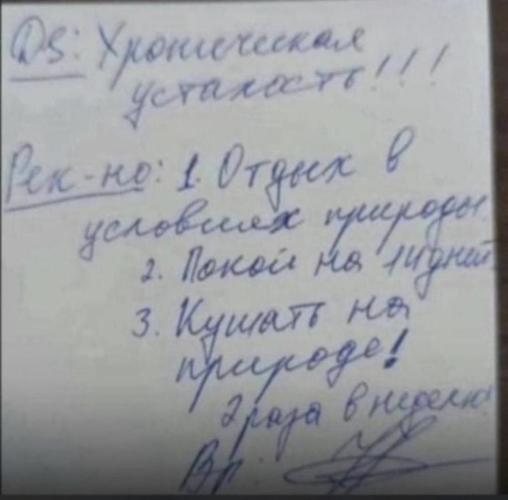 DS: Хроническая
усталость!!!
Рек-но: 1. Отдых в
условиях природы
2. Покой на 14 дней
3. Кушать на
природе!
2 раза в неделю
Вр.